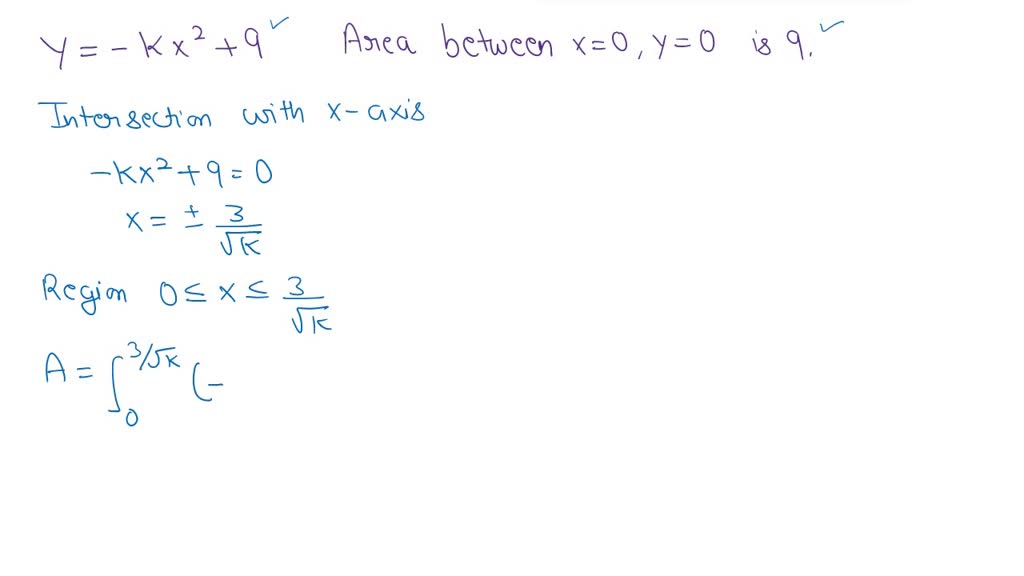 Y = -kx² + 9 ✓ Area between x=0, y=0 is 9. ✓
Intersection with x-axis
-kx² + 9 = 0
x = ± 3/√k
Region 0 ≤ x ≤ 3/√k
A = ∫₀^(3/√k) (-